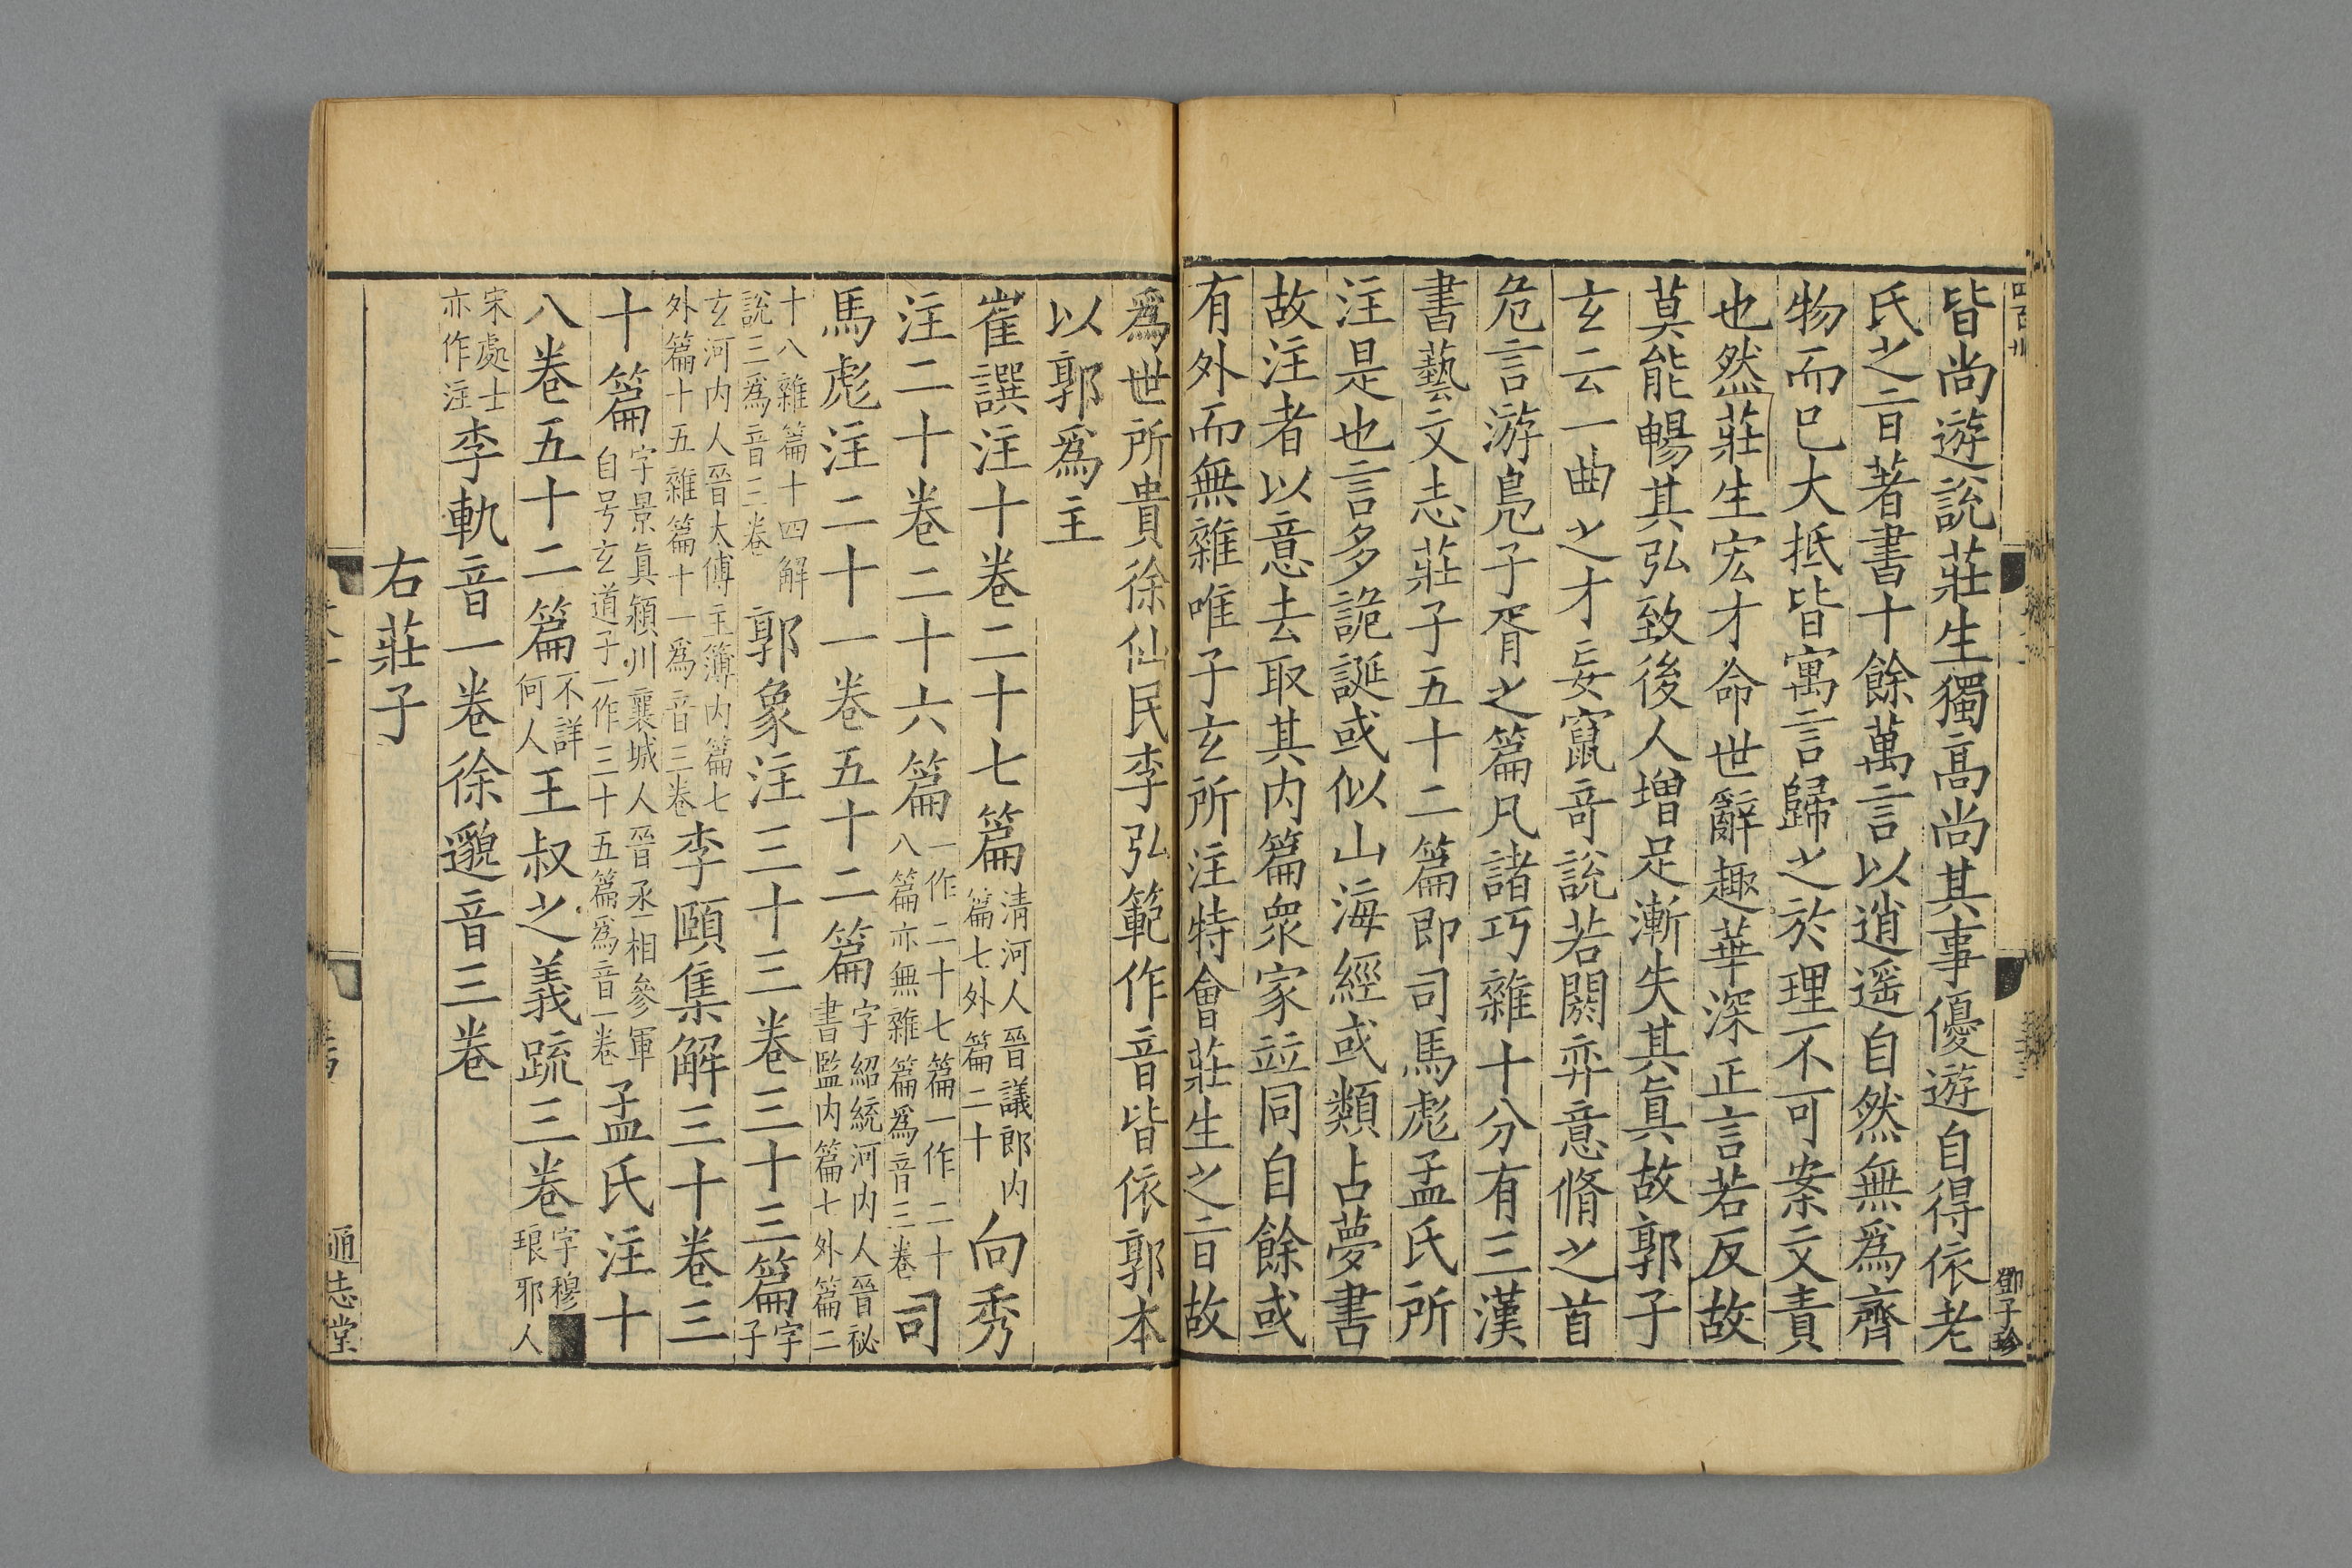 皆尚遊說莊生獨高尚其事優遊自得依老
氏之旨著書十餘萬言以逍遥自然無爲齊
物而巳大抵皆寓言歸之於理不可案文責
也然莊生宏才命世辭趣華深正言若反故
莫能暢其弘致後人增足漸失其眞故郭子
玄云一曲之才妄竄竒說若閼弈意脩之首
危言游鳧子胥之篇凡諸巧雜十分有三漢
書藝文志莊子五十二篇即司馬彪孟氏所
注是也言多詭誕或似山海經或類占夢書
故注者以意去取其内篇衆家竝同自餘或
有外而無雜唯子玄所注特會莊生之旨故
爲世所貴徐仙民李弘範作音皆依郭本
以郭爲主
崔譔注十卷二十七篇清河人晉議郎内篇七外篇二十向秀
注二十卷二十六篇一作二十七篇一作二十八篇亦無雜篇爲音三卷司
馬彪注二十一卷五十二篇字紹統河内人晉祕書監内篇七外篇二
十八雜篇十四解說三爲音三卷郭象注三十三卷三十三篇字子
玄河内人晉太傅主簿内篇七外篇十五雜篇十一爲音三卷李頤集解三十卷三
十篇字景眞潁川襄城人晉丞相參軍自号玄道子一作三十五篇爲音一卷孟氏注十
八卷五十二篇不詳何人王叔之義疏三卷字穆琅邪人
宋處士亦作注李軌音一卷徐邈音三卷
右莊子
鄧子珍
通志堂